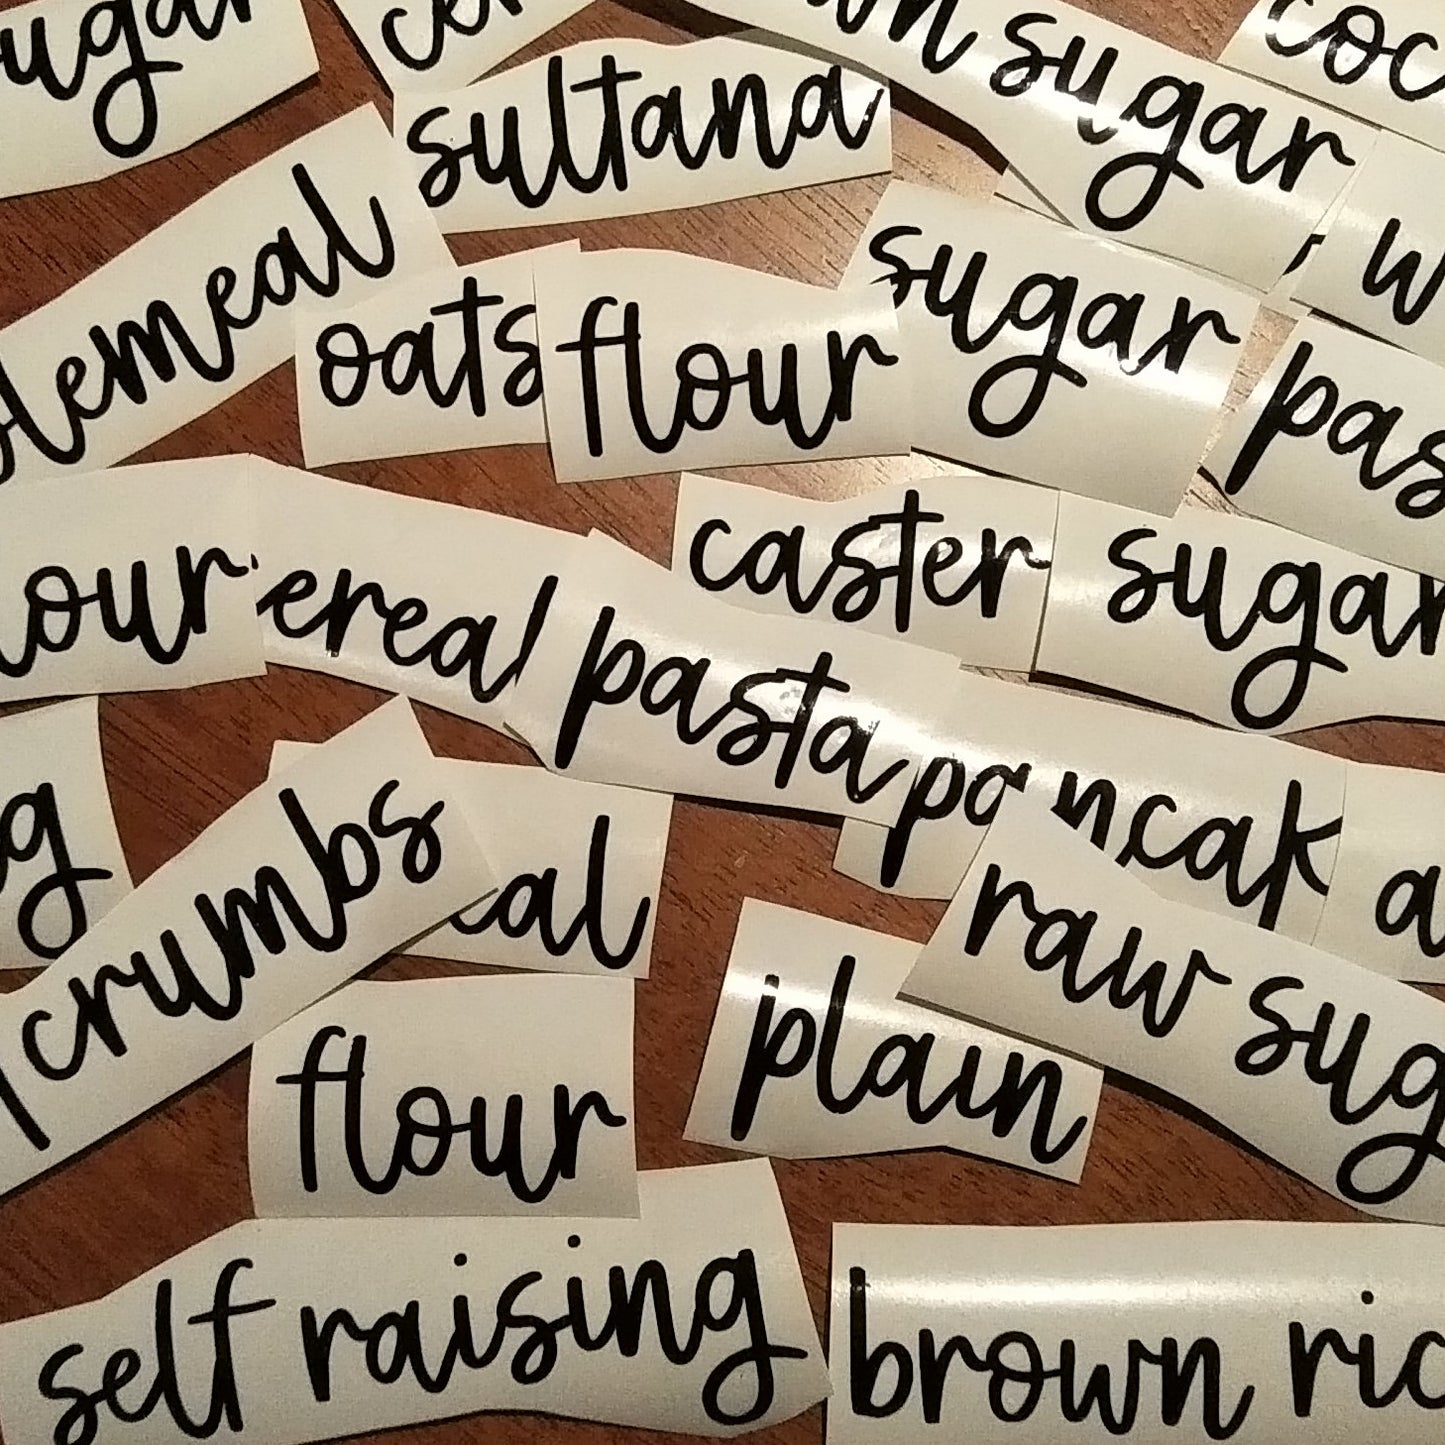 ugar
sultana
sugar
coc
w
lemeal
oats
flour
sugar
pas
our
ereal
caster
sugar
pasta
pancak
g
crumbs
al
raw sug
a
plain
flour
self raising
brown ric